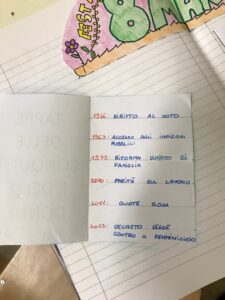 FEST
8 MAR
TAPPE
1946: DIRITTO AL VOTO
1963: ACCESSO AGLI IMPIEGHI
PUBBLICI
1975: RIFORMA DIRITTO DI
FAMIGLIA
PARITÀ SUL LAVORO
2011: QUOTE ROSA
2013: DECRETO LEGGE
CONTRO IL FEMMINICIDIO